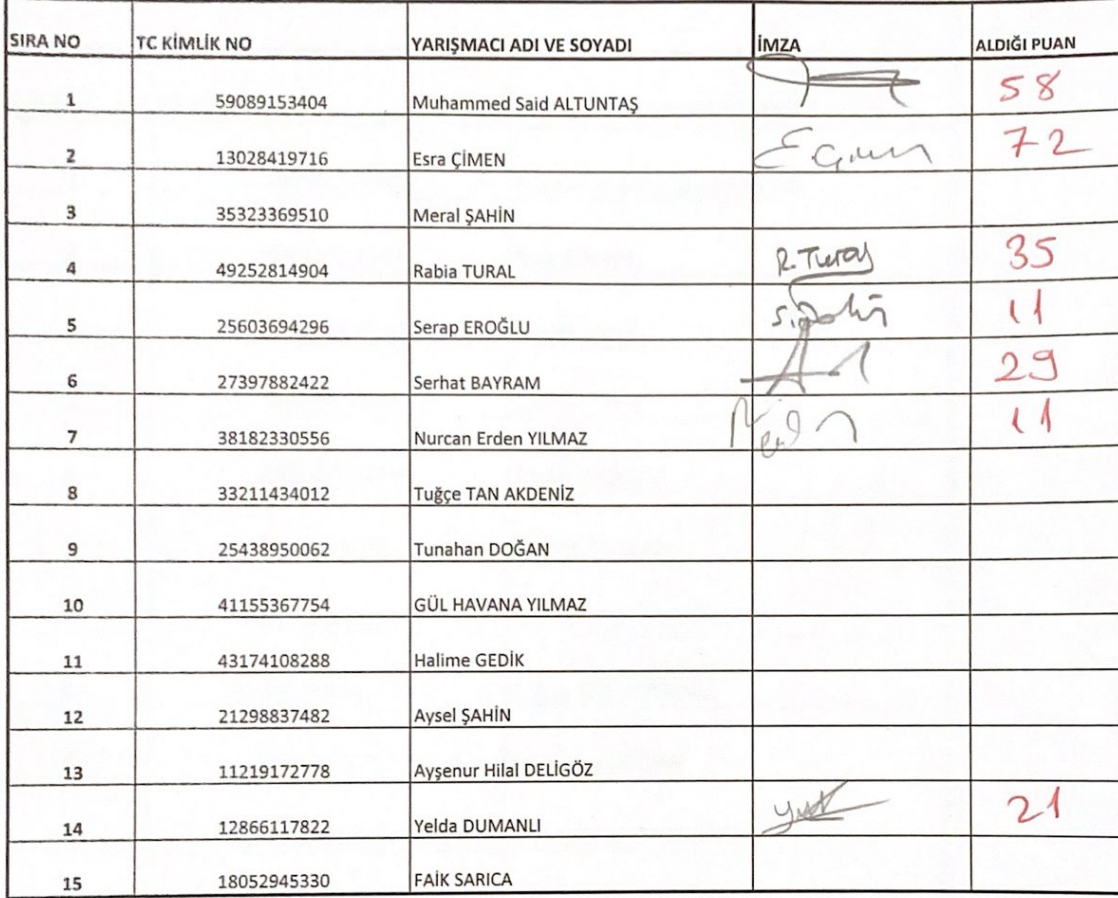 SIRA NO TC KİMLİK NO YARIŞMACI ADI VE SOYADI İMZA ALDIĞI PUAN
1 59089153404 Muhammed Said ALTUNTAŞ 58
2 13028419716 Esra ÇİMEN 72
3 35323369510 Meral ŞAHİN
4 49252814904 Rabia TURAL R.Tural 35
5 25603694296 Serap EROĞLU 11
6 27397882422 Serhat BAYRAM 29
7 38182330556 Nurcan Erden YILMAZ 11
8 33211434012 Tuğçe TAN AKDENİZ
9 25438950062 Tunahan DOĞAN
10 41155367754 GÜL HAVANA YILMAZ
11 43174108288 Halime GEDİK
12 21298837482 Aysel ŞAHİN
13 11219172778 Ayşenur Hilal DELİGÖZ
14 12866117822 Yelda DUMANLI 21
15 18052945330 FAİK SARICA